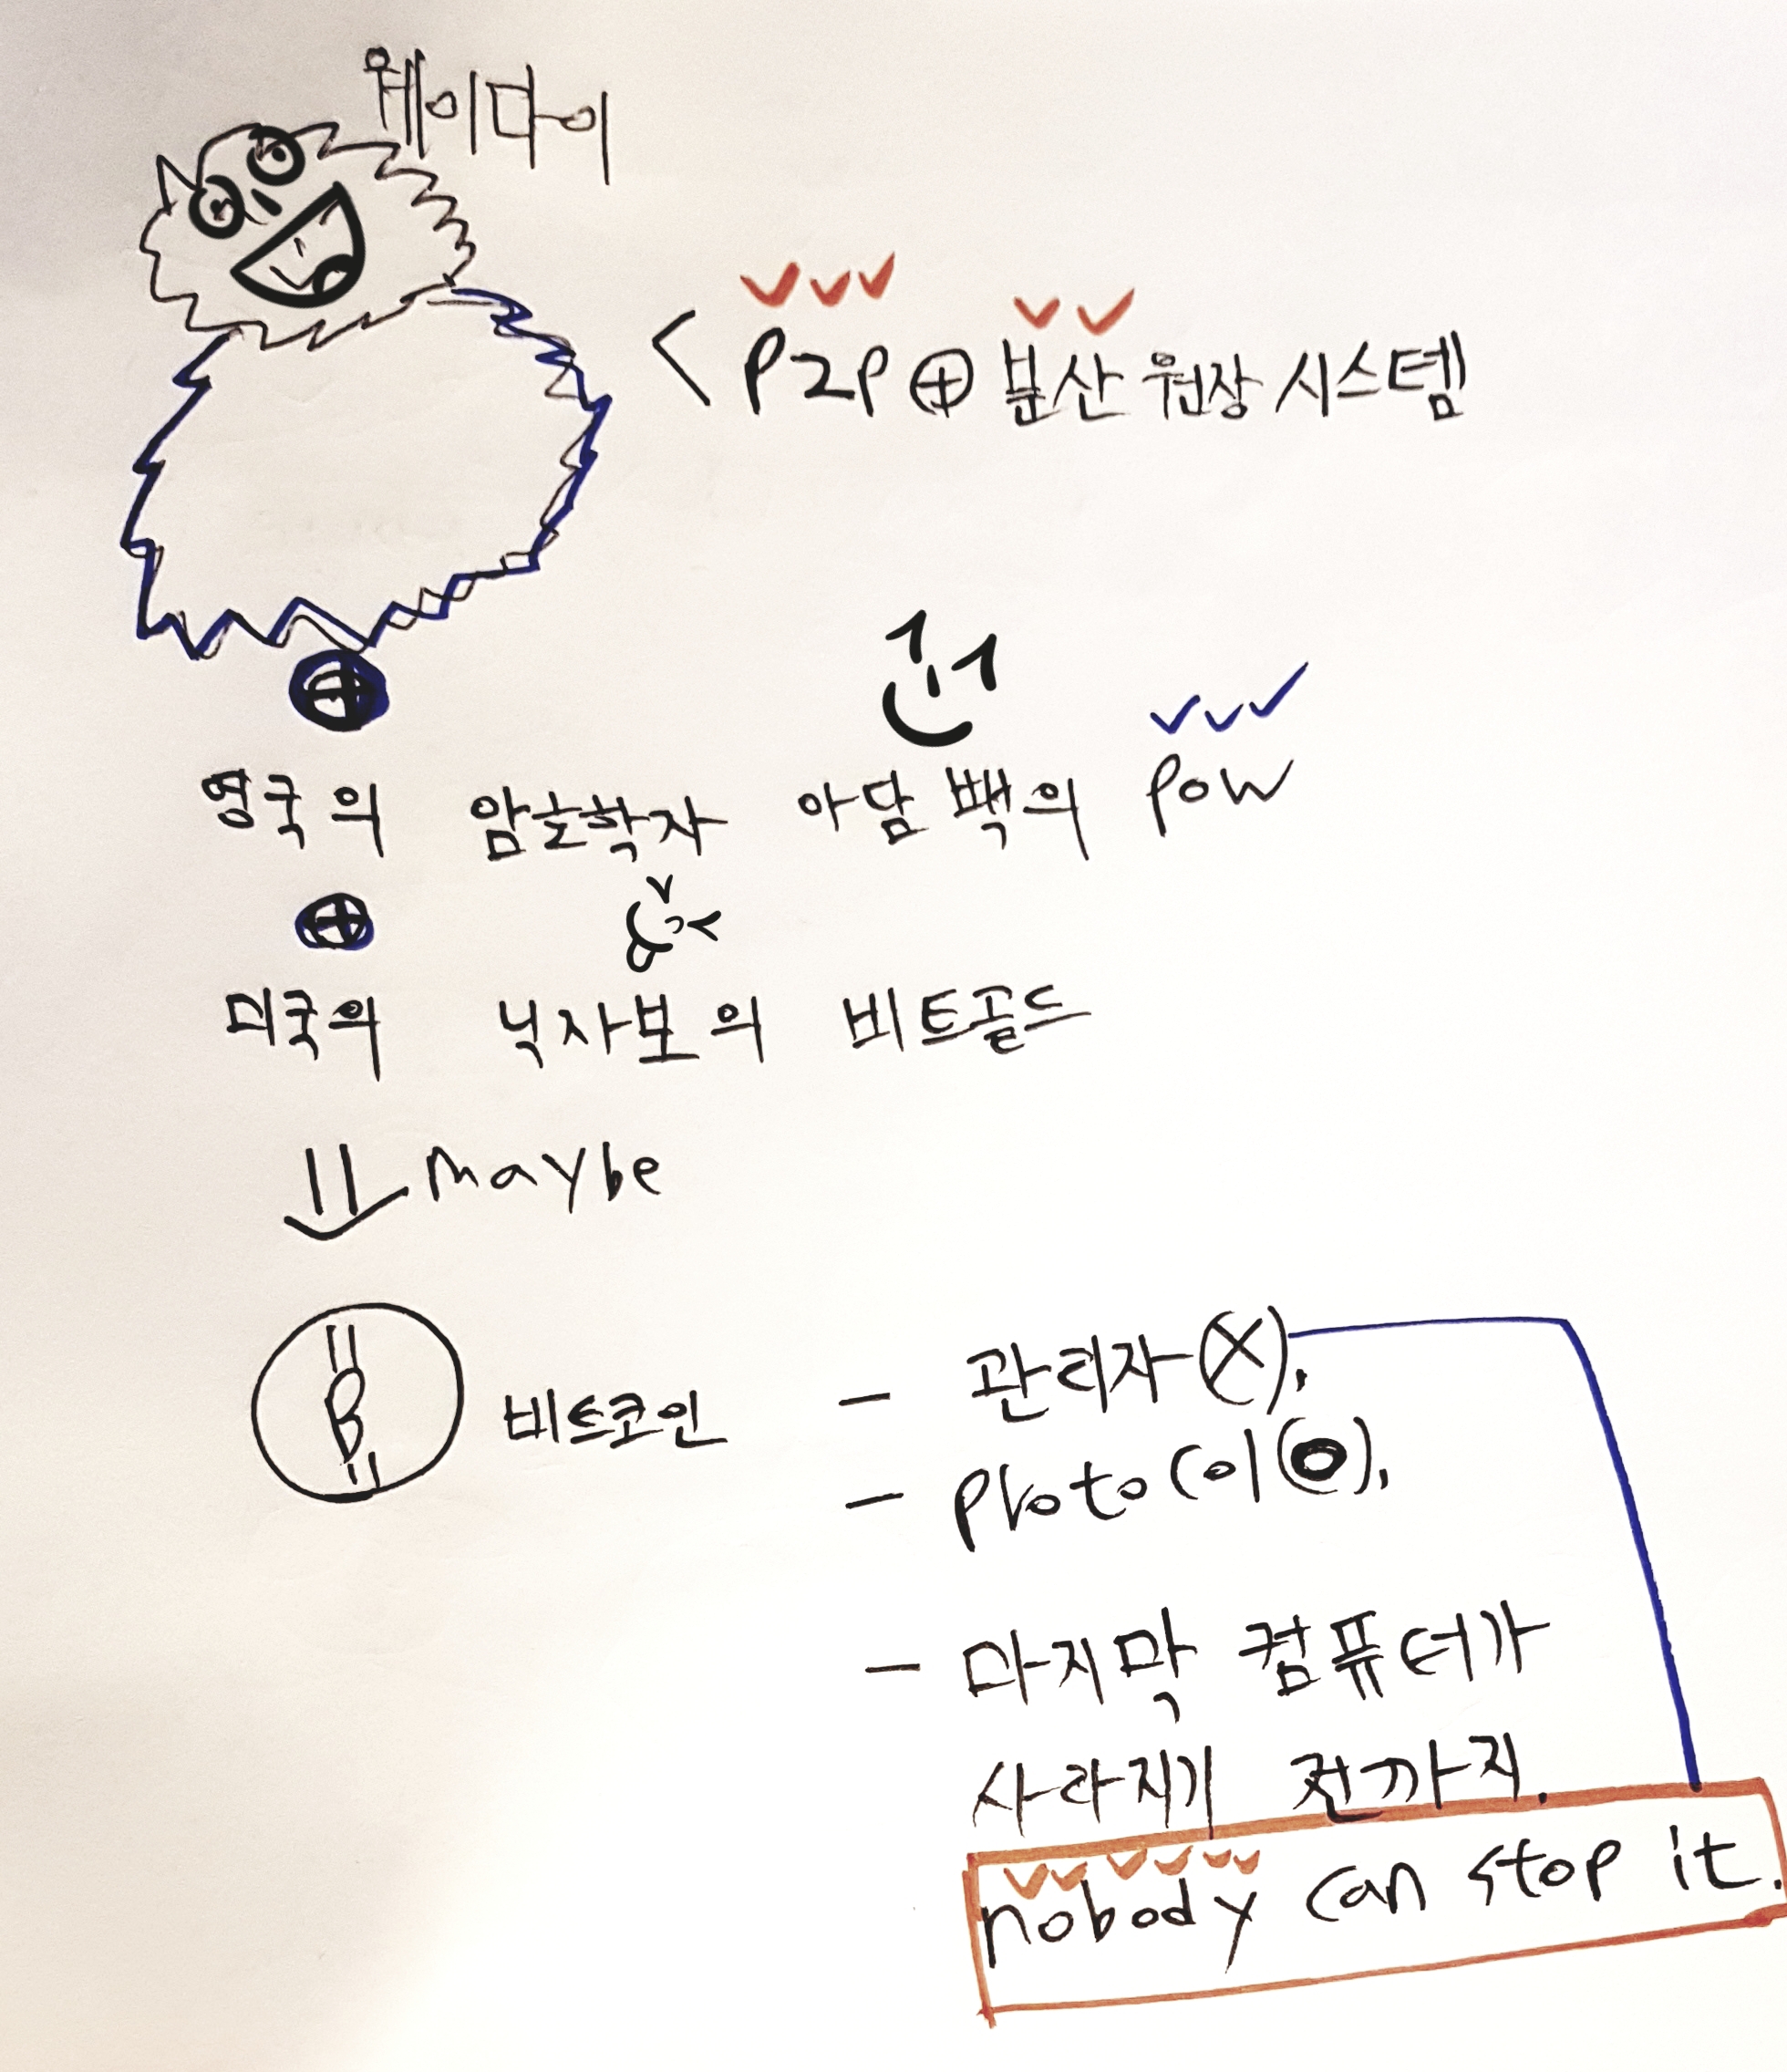 웨이다이
< P2P ⊕ 분산 원장 시스템
⊕
영국의 암호학자 아담 백의 POW
⊕
미국의 닉사보의 비트골드
maybe
B 비트코인 - 관리자(X),
- Protocol(O),
- 마지막 컴퓨터가
사라지기 전까지.
nobody can stop it.